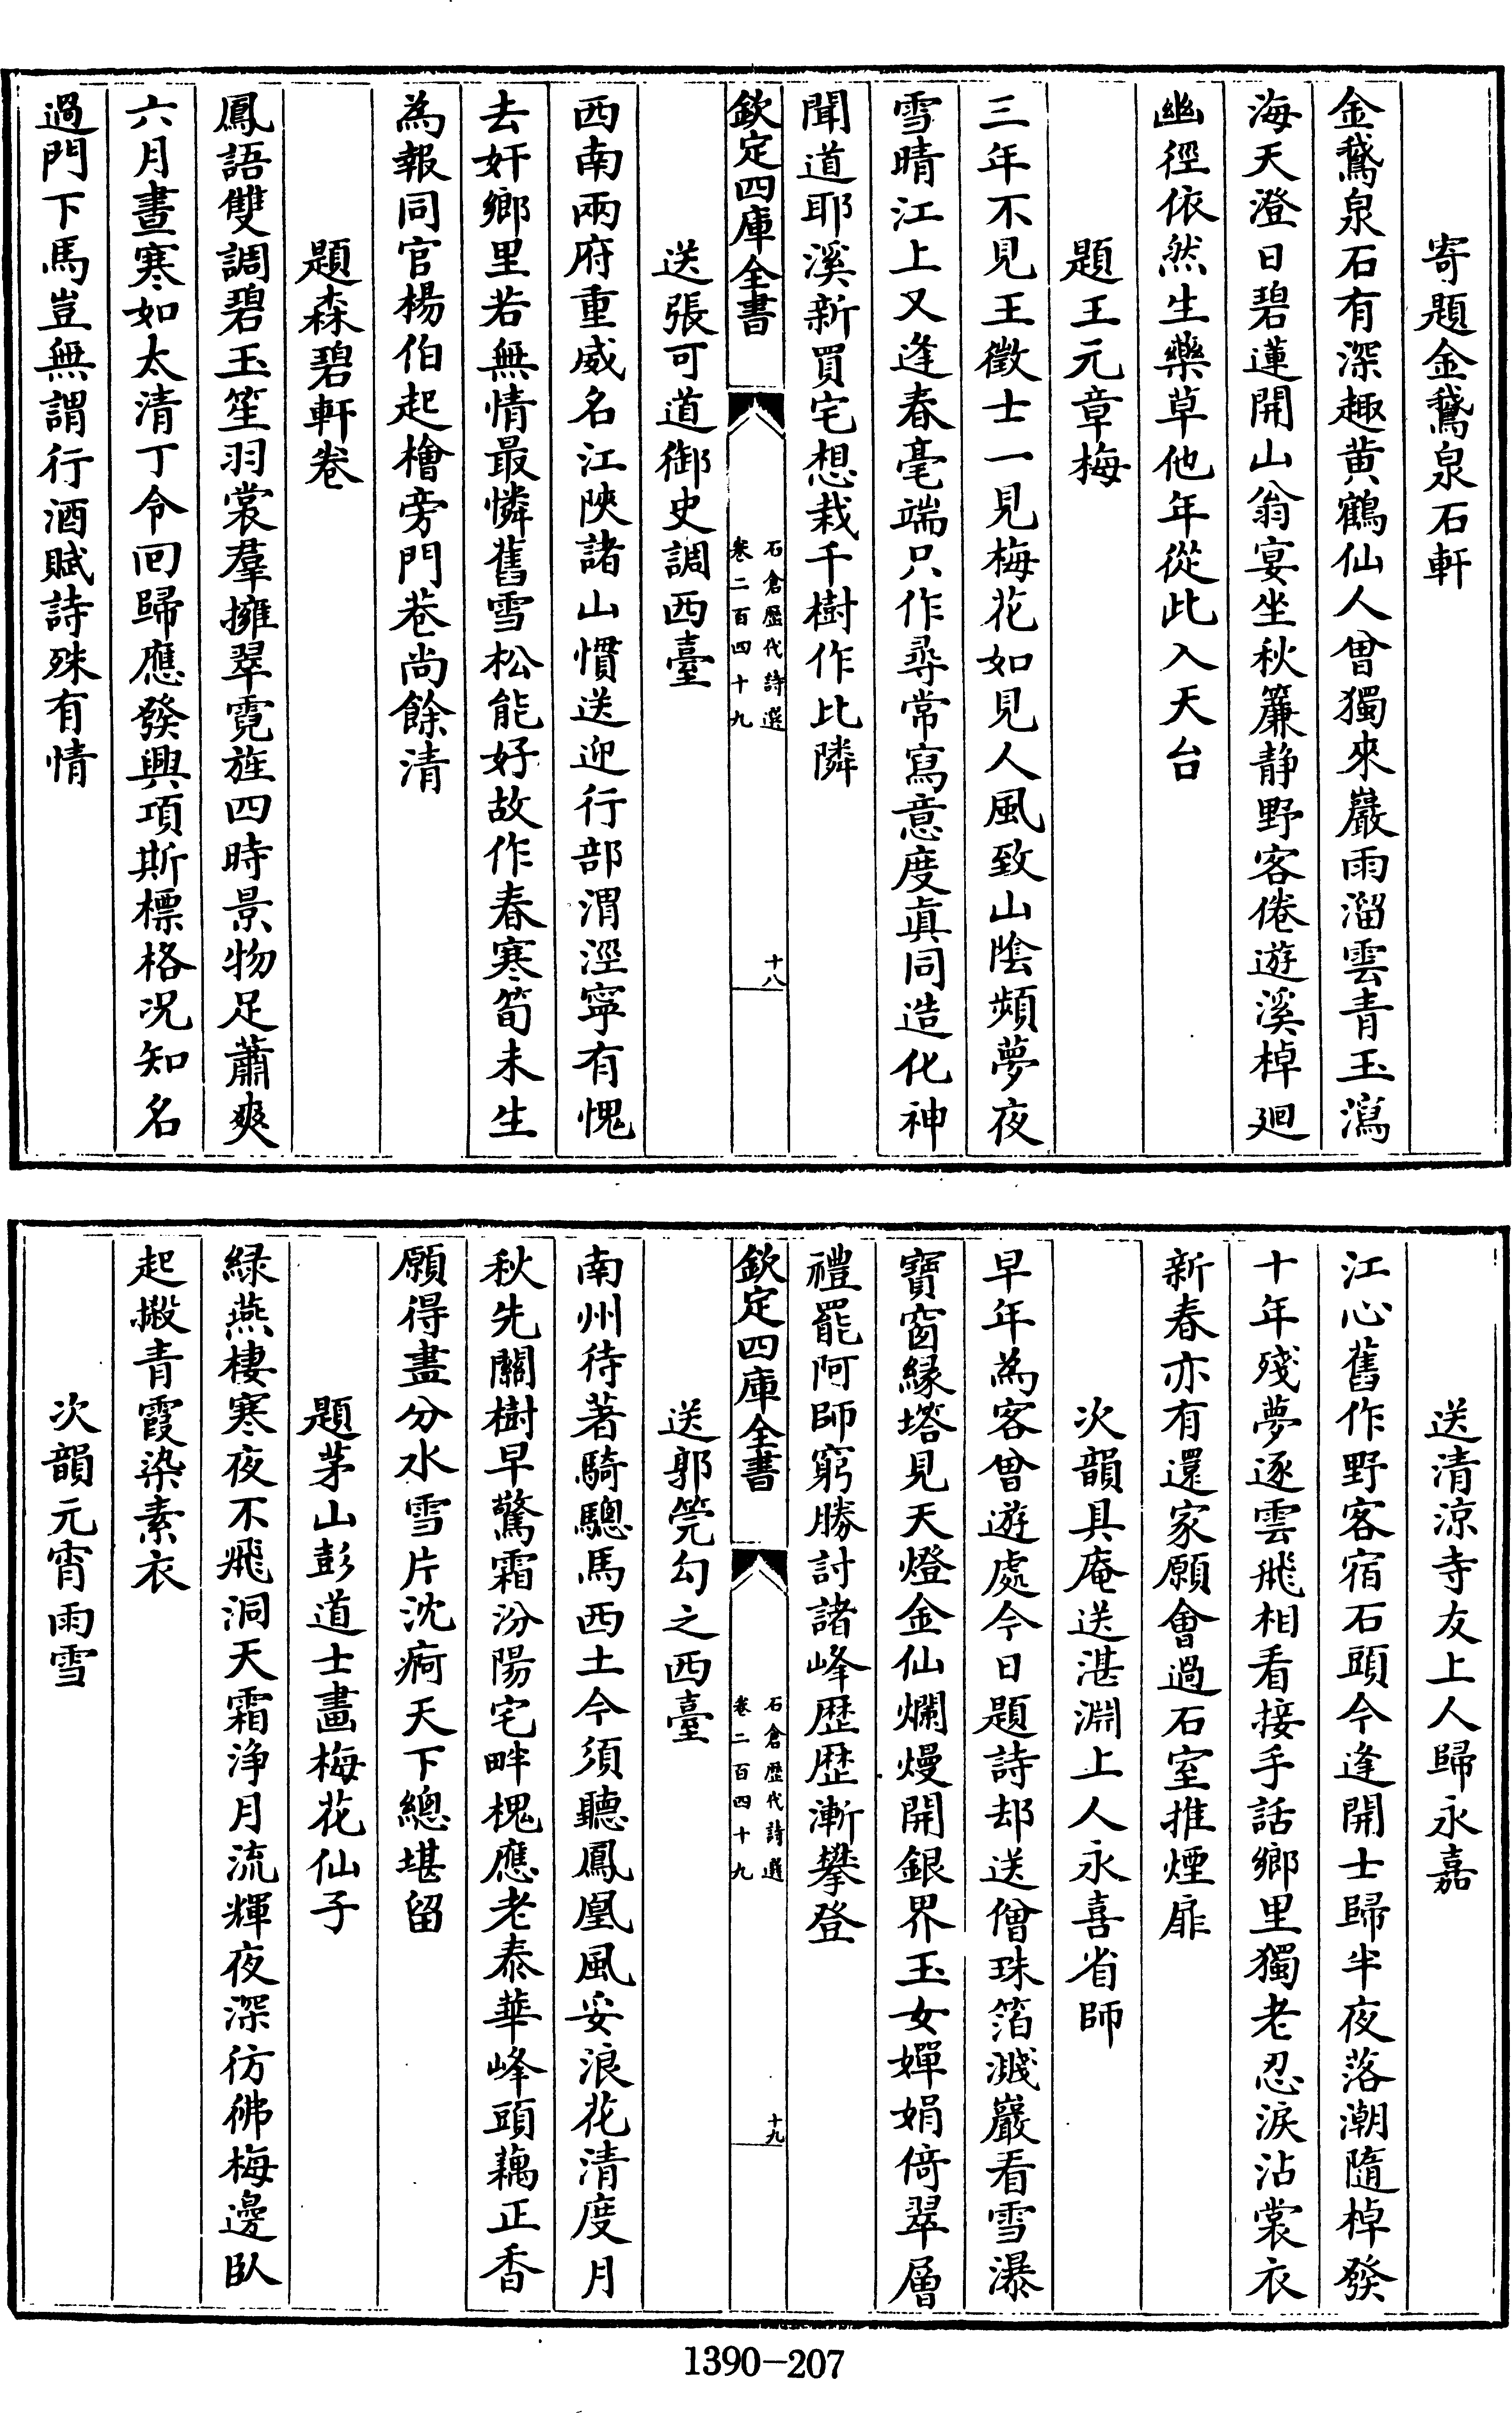 寄題金鵞泉石軒
金鵞泉石有深趣黄鶴仙人曾獨來巖雨溜雲青玉瀉
海天澄日碧蓮開山翁宴坐秋簾静野客倦遊溪棹廻
幽徑依然生藥草他年從此入天台
題王元章梅
三年不見王徵士一見梅花如見人風致山隂頻夢夜
雪晴江上又逢春毫端只作尋常寫意度眞同造化神
聞道耶溪新買宅想栽千樹作比隣
欽定四庫全書
石倉歴代詩選
卷二百四十九
十八
送張可道御史調西臺
西南兩府重威名江陜諸山慣送迎行部渭涇寧有愧
去奸鄉里若無情最憐舊雪松能好故作春寒筍未生
為報同官楊伯起檜旁門巷尚餘清
題森碧軒卷
鳳語雙調碧玉笙羽裳羣擁翠霓旌四時景物足蕭爽
六月晝寒如太清丁令回歸應發興項斯標格况知名
過門下馬豈無謂行酒賦詩殊有情
送清涼寺友上人歸永嘉
江心舊作野客宿石頭今逢開士歸半夜落潮隨棹發
十年殘夢逐雲飛相看接手話鄉里獨老忍淚沾裳衣
新春亦有還家願會過石室推煙扉
次韻具庵送湛淵上人永喜省師
早年為客曾遊處今日題詩却送僧珠箔濺巖看雪瀑
寶窗縁塔見天燈金仙爛熳開銀界玉女嬋娟倚翠層
禮罷阿師窮勝討諸峰歴歴漸攀登
欽定四庫全書
石倉歴代詩選
卷二百四十九
十九
送郭筦勾之西臺
南州待著騎驄馬西土今須聽鳳凰風妥浪花清度月
秋先關樹早驚霜汾陽宅畔槐應老泰華峰頭藕正香
願得盡分水雪片沈痾天下總堪留
題茅山彭道士畫梅花仙子
緑燕棲寒夜不飛洞天霜浄月流輝夜深彷彿梅邊臥
起搬青霞染素衣
次韻元宵雨雪
1390-207